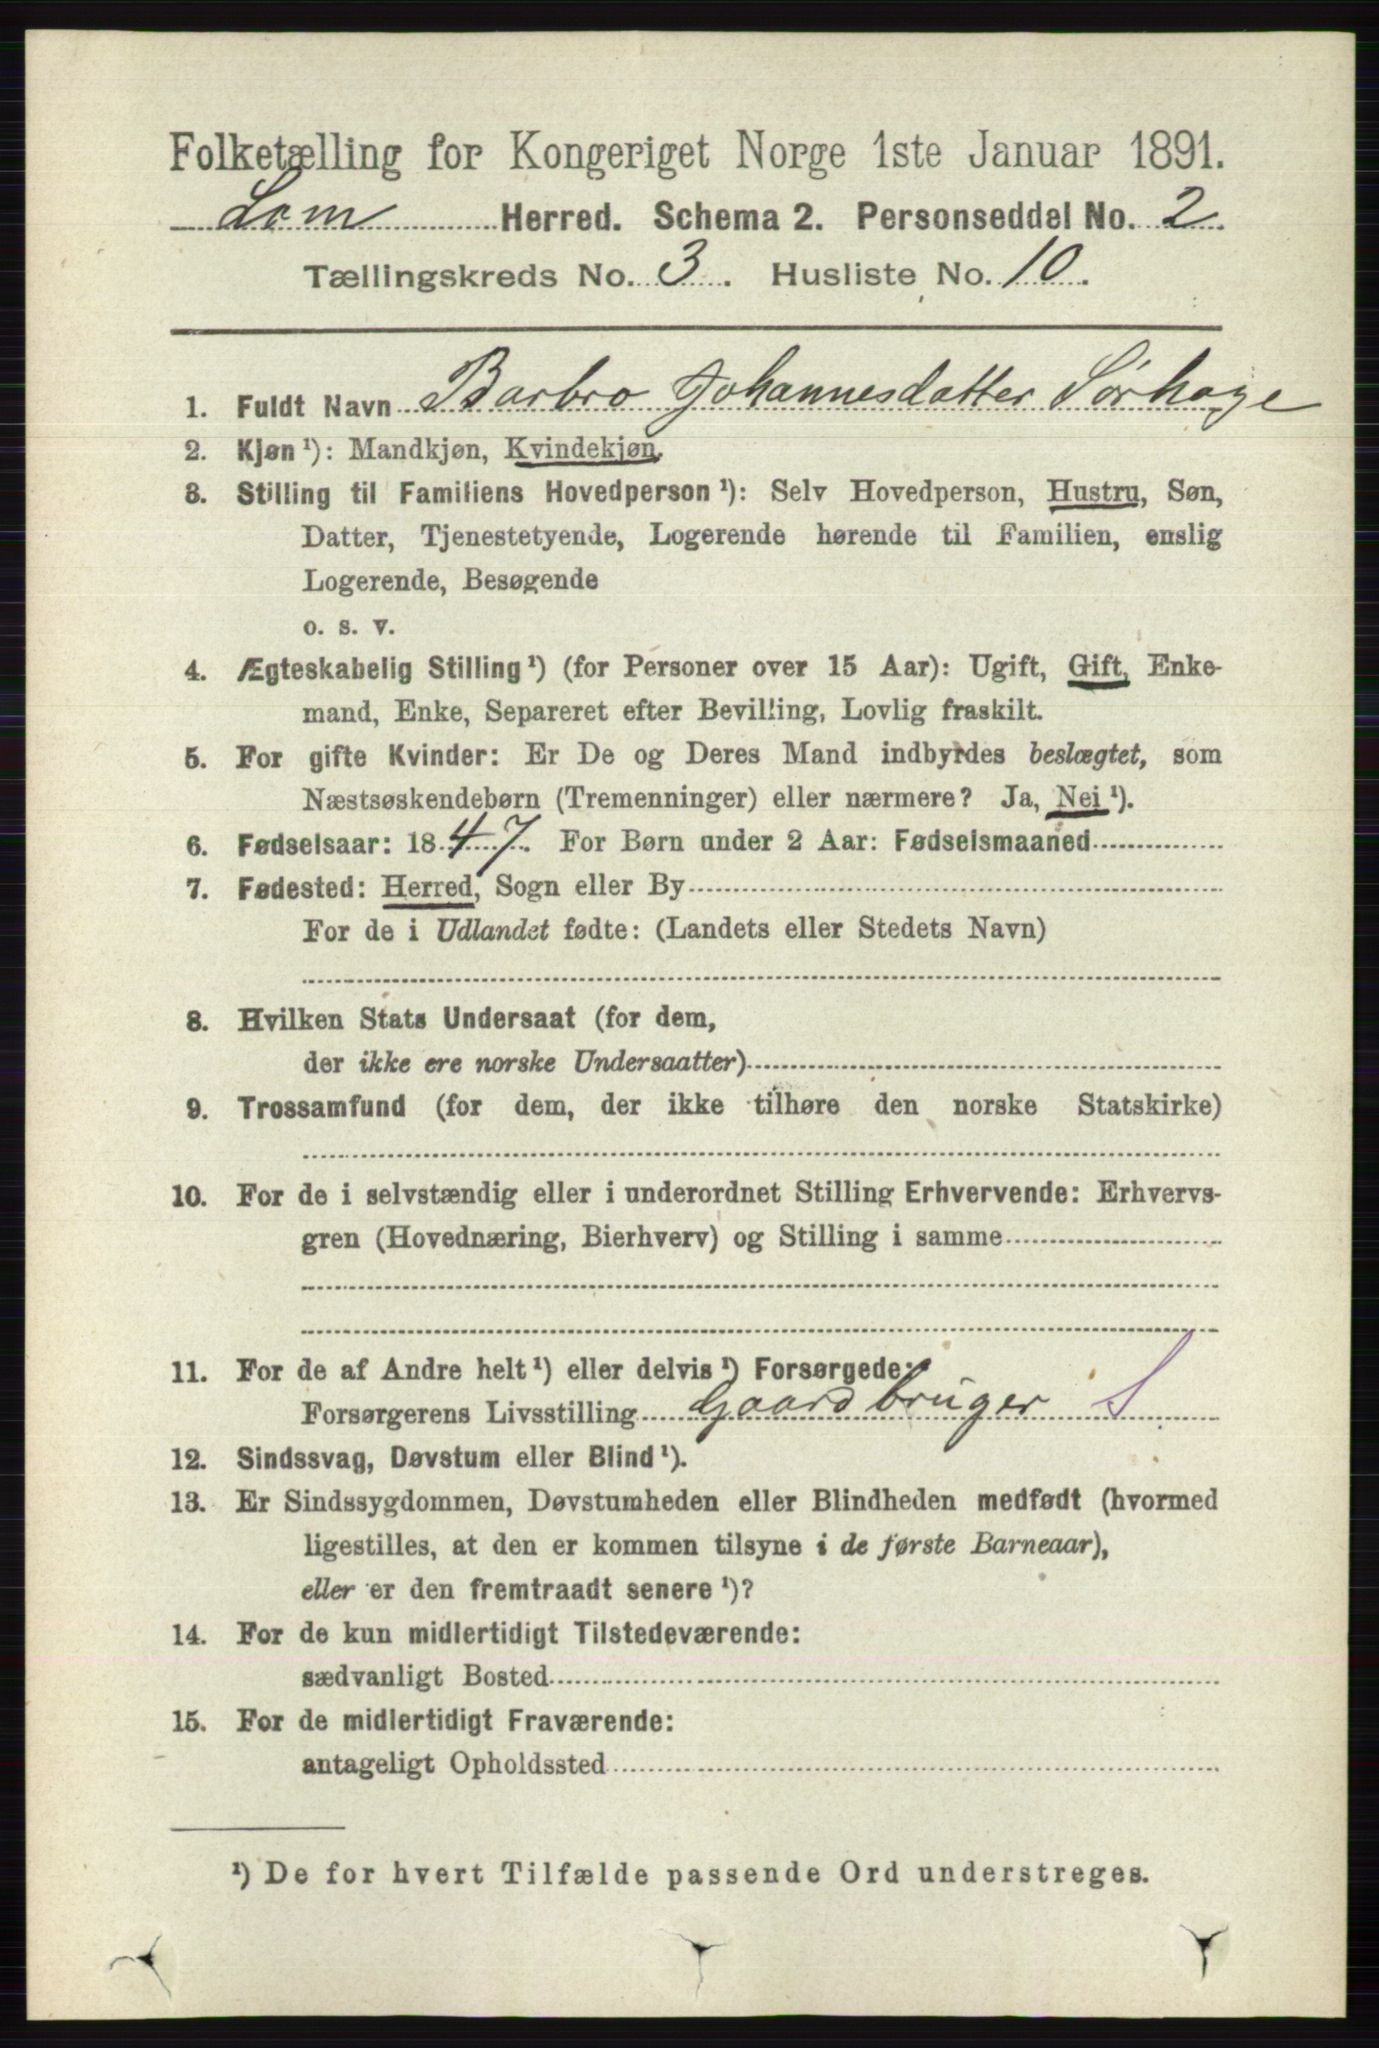 Folketælling for Kongeriget Norge 1ste Januar 1891.
Lom Herred. Schema 2. Personseddel No. 2
Tællingskreds No. 3. Husliste No. 10.
1. Fuldt Navn Barbro Johannesdatter Sørhage
2. Kjøn ¹): Mandkjøn, Kvindekjøn.
3. Stilling til Familiens Hovedperson ¹): Selv Hovedperson, Hustru, Søn,
Datter, Tjenestetyende, Logerende hørende til Familien, enslig
Logerende, Besøgende
o. s. v.
4. Ægteskabelig Stilling ¹) (for Personer over 15 Aar): Ugift, Gift, Enke-
mand, Enke, Separeret efter Bevilling, Lovlig fraskilt.
5. For gifte Kvinder: Er De og Deres Mand indbyrdes beslægtet, som
Næstsøskendebørn (Tremenninger) eller nærmere? Ja, Nei ¹).
6. Fødselsaar: 1847. For Børn under 2 Aar: Fødselsmaaned
7. Fødested: Herred, Sogn eller By
For de i Udlandet fødte: (Landets eller Stedets Navn)
8. Hvilken Stats Undersaat (for dem,
der ikke ere norske Undersaatter)
9. Trossamfund (for dem, der ikke tilhøre den norske Statskirke)
10. For de i selvstændig eller i underordnet Stilling Erhvervende: Erhvervs-
gren (Hovednæring, Bierhverv) og Stilling i samme
11. For de af Andre helt ¹) eller delvis ¹) Forsørgede:
Forsørgerens Livsstilling Gaardbruger S
12. Sindssvag, Døvstum eller Blind ¹).
13. Er Sindssygdommen, Døvstumheden eller Blindheden medfødt (hvormed
ligestilles, at den er kommen tilsyne i de første Barneaar),
eller er den fremtraadt senere ¹)?
14. For de kun midlertidigt Tilstedeværende:
sædvanligt Bosted
15. For de midlertidigt Fraværende:
antageligt Opholdssted
¹) De for hvert Tilfælde passende Ord understreges.